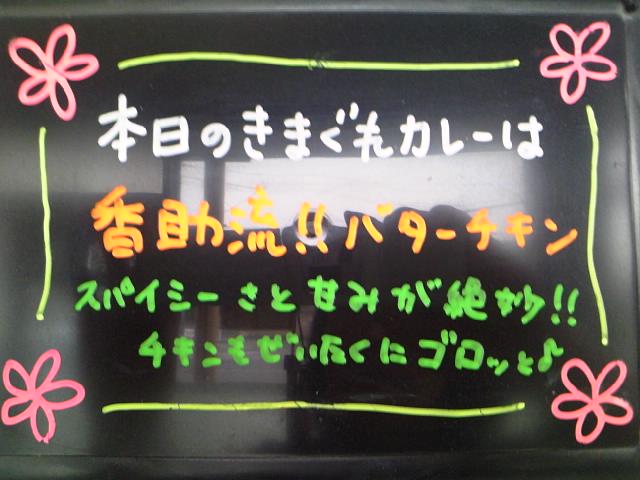 本日のきまぐれカレーは
香助流!!バターチキン
スパイシーさと甘みが絶妙!!
チキンもぜいたくにゴロッと♪